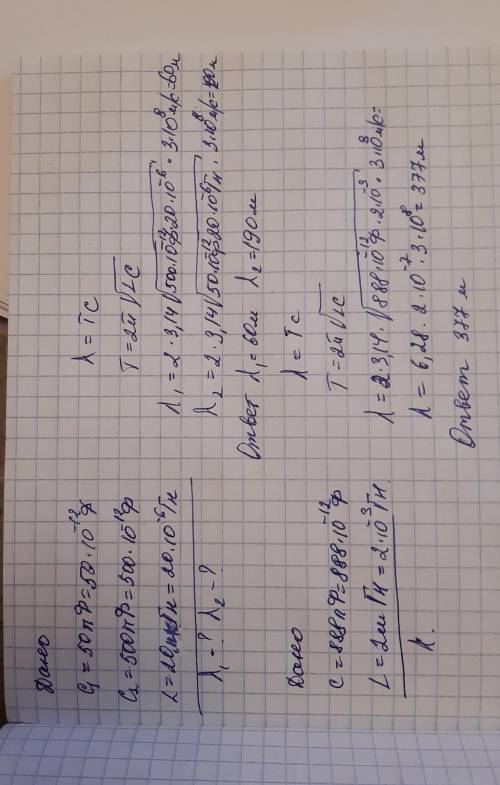 Дано
C₁ = 50пФ = 50·10⁻¹²Ф
C₂ = 500пФ = 500·10⁻¹²Ф
L = 20мкГн = 20·10⁻⁶Гн
λ₁ - ? λ₂ - ?
λ = Tc
T = 2π√LC
λ₁ = 2·3,14√500·10⁻¹²Ф20·10⁻⁶·3·10⁸м/с=60м
λ₂ = 2·3,14√50·10⁻¹²Ф20·10⁻⁶Гн·3·10⁸м/с=190м
Ответ λ₁=60м λ₂=190м
Дано
C = 888пФ = 888·10⁻¹²Ф
L = 2мГн = 2·10⁻³Гн
λ.
λ = Tc
T = 2π√LC
λ = 2·3,14·√888·10⁻¹²Ф·2·10⁻³·3·10⁸м/с=
λ = 6,28·2·10⁻⁷·3·10⁸=377м
Ответ 377 м